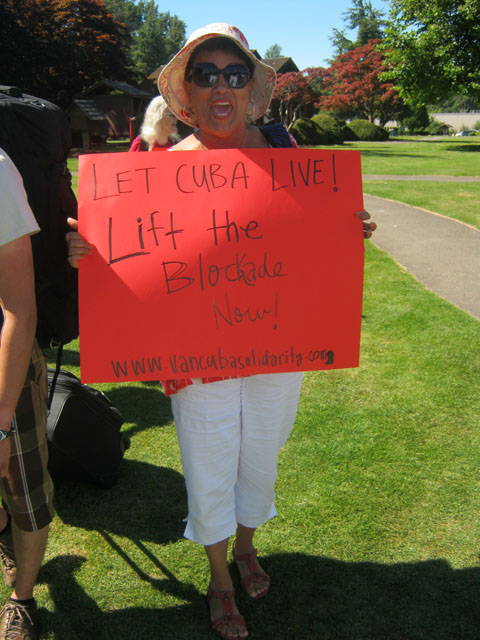 LET CUBA LIVE!
Lift the
Blockade
Now!
www.vancubasolidarity.com